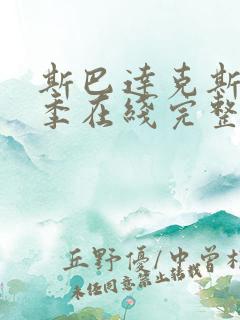 斯巴达克斯
季在线完整
丘野優/中曽根
未经同意禁止转载